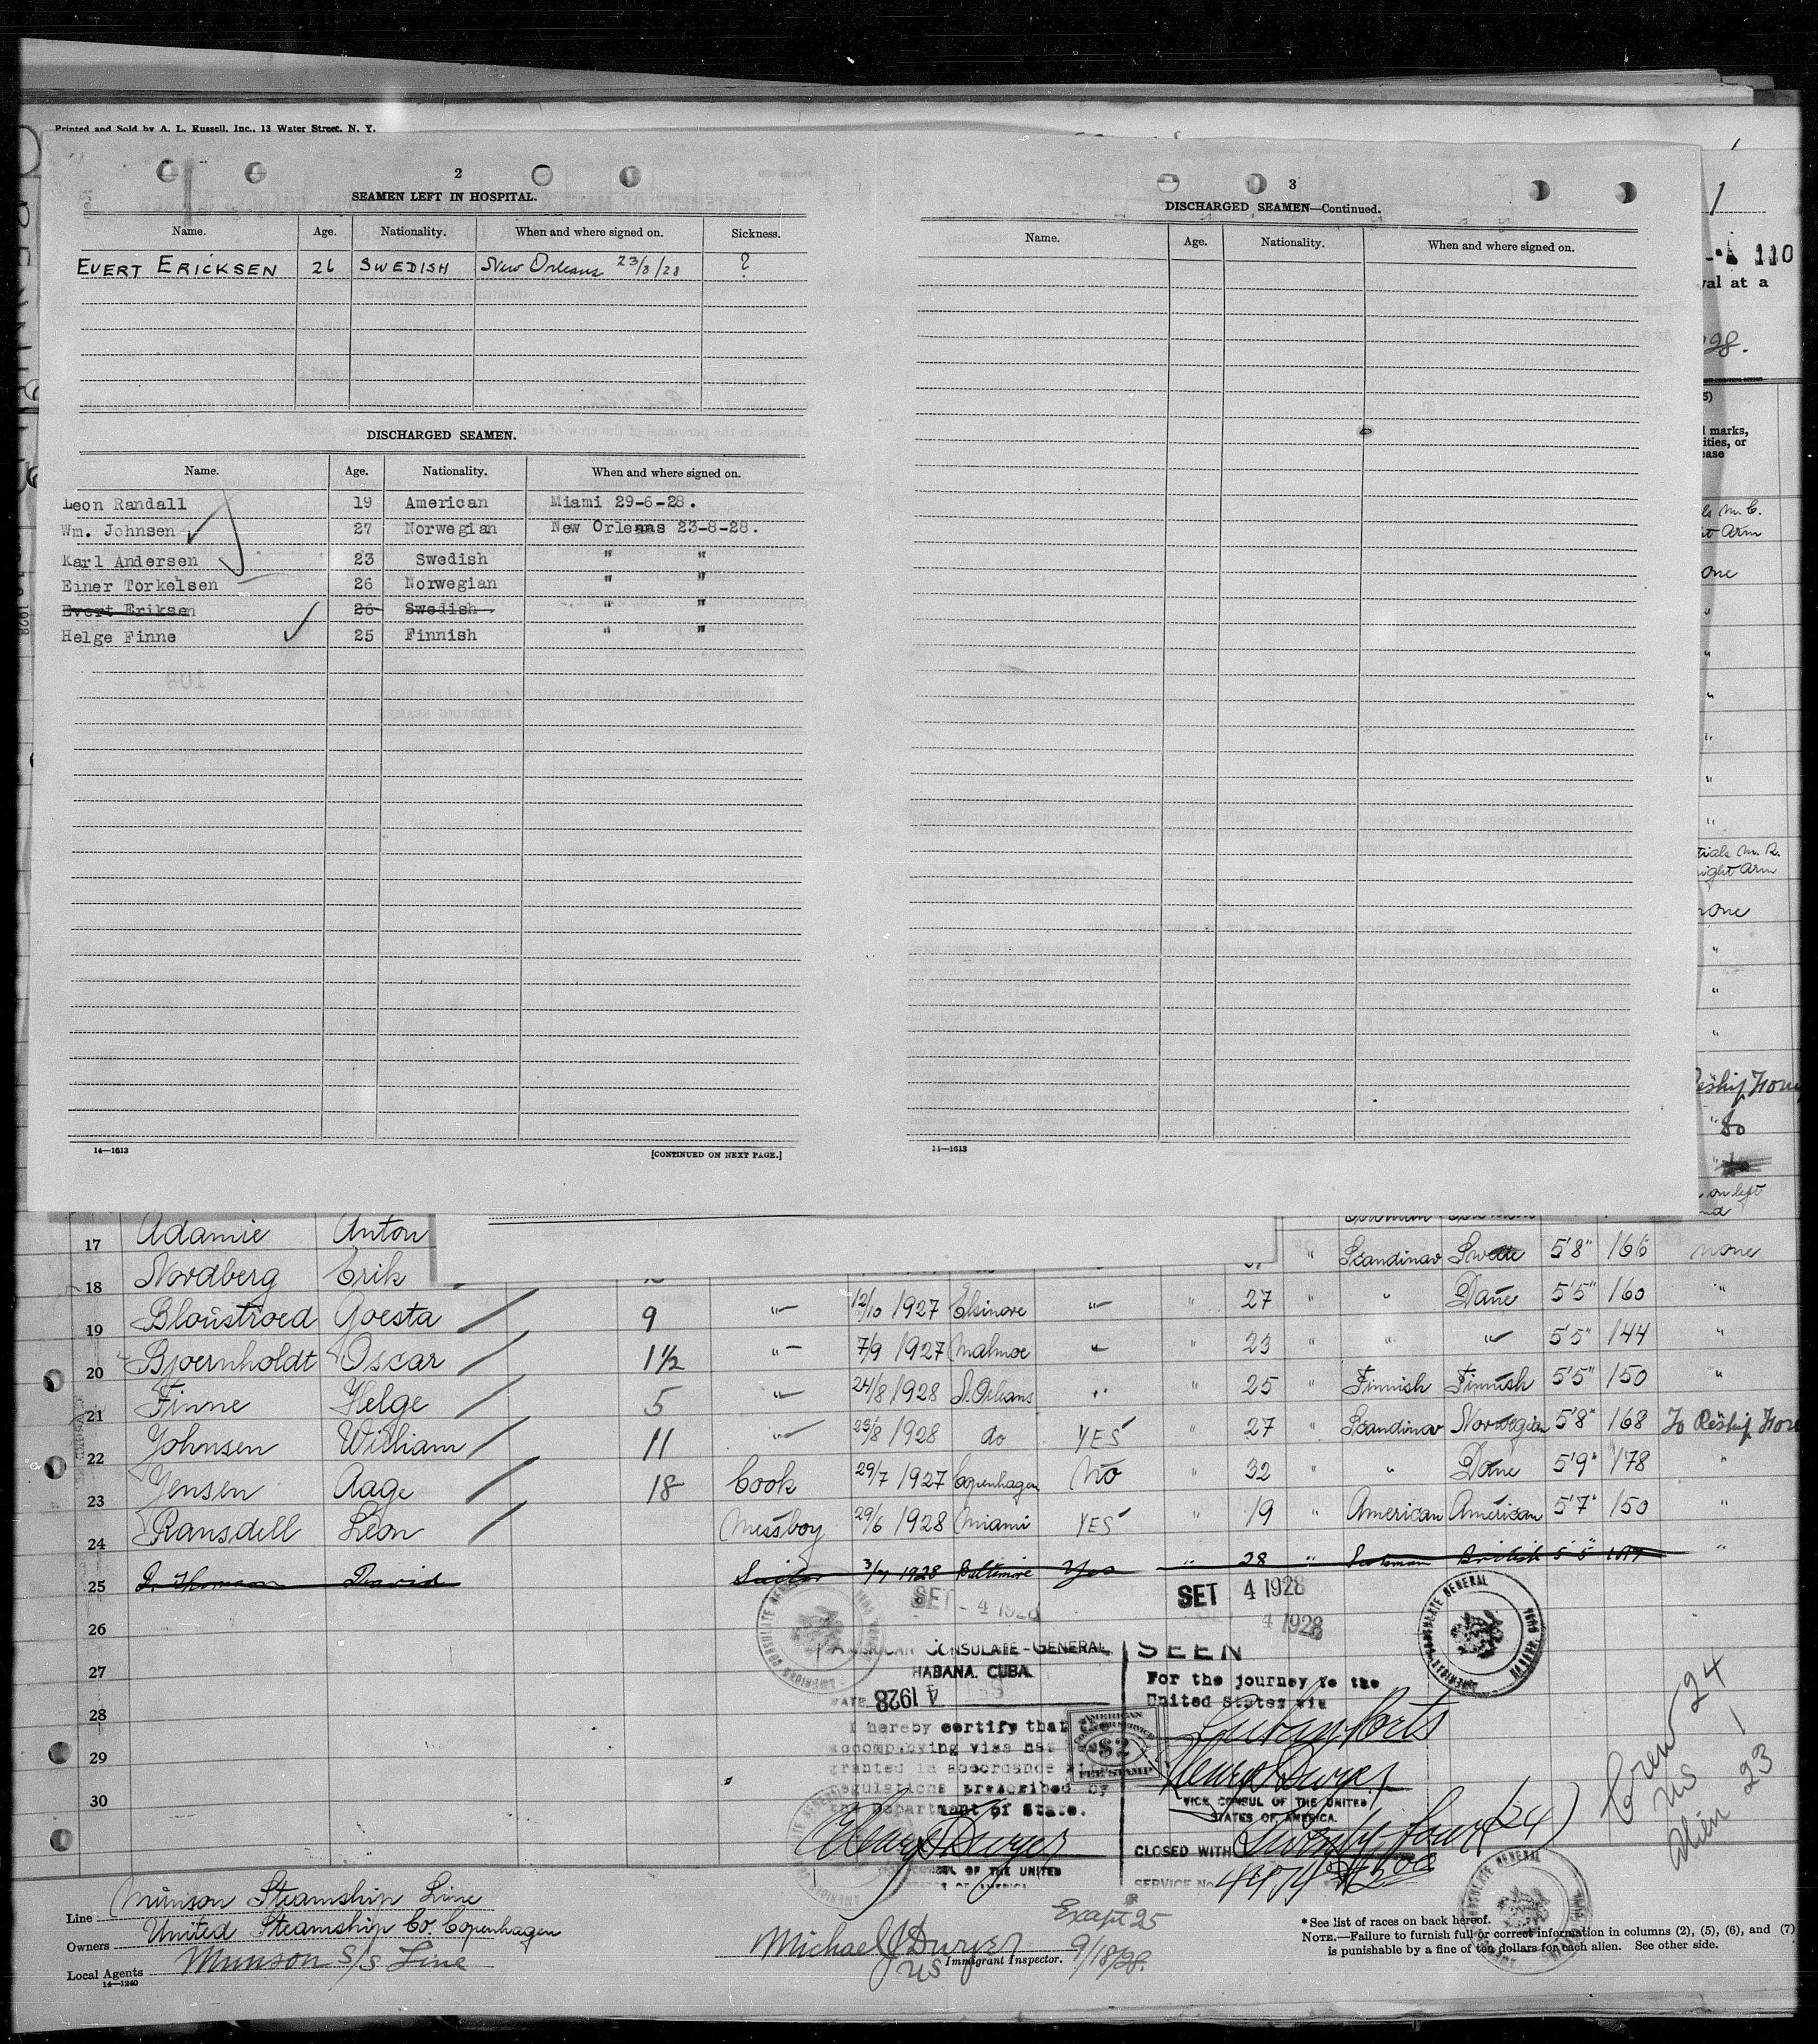 Printed and Sold by A. L. Russell, Inc., 13 Water Street, N. Y.
2
SEAMEN LEFT IN HOSPITAL.
Name. Age. Nationality. When and where signed on. Sickness.
EVERT ERICKSEN 26 SWEDISH New Orleans 23/8/28 ?
DISCHARGED SEAMEN.
Name. Age. Nationality. When and where signed on.
Leon Randall 19 American Miami 29-6-28.
Wm. Johnsen 27 Norwegian New Orleans 23-8-28.
Karl Andersen 23 Swedish " "
Einer Torkelsen 26 Norwegian " "
Evert Eriksen 26 Swedish. " "
Helge Finne 25 Finnish " "
14—1613 [CONTINUED ON NEXT PAGE.]
3
DISCHARGED SEAMEN—Continued.
Name. Age. Nationality. When and where signed on.
14—1613
1
110
val at a
marks,
ities, or
ease
M. C.
Arm
one
"
"
"
"
"
"
M. R.
right Arm
none
"
"
"
Reship
" do
on left
17 Adamie Anton
18 Nordberg Erik " Scandinav Swede 5'8" 166 none
19 Bloustroed Goesta 9 " 12/10 1927 Elsinore " " 27 " " Dane 5'5" 160 "
20 Bjoernholdt Oscar 1½ " 7/9 1927 Malmoe " " 23 " " " 5'5" 144 "
21 Finne Helge 5 " 24/8 1928 N. Orleans " " 25 " Finnish Finnish 5'5" 150 "
22 Johnsen William 11 " 23/8 1928 do YES " 27 " Scandinav Norwegian 5'8" 168 To Reship
23 Jensen Aage 18 Cook 29/7 1927 Copenhagen NO " 32 " " Dane 5'9" 178 "
24 Ransdell Leon Messboy 29/6 1928 Miami YES " 19 " American American 5'7" 150 "
25 Thomson David Sailor 3/7 1928 Baltimore Yes " 28 " Scotsman British 5'5" "
26
27
28
29
30
SET - 4 1928
SET 4 1928
4 1928
AMERICAN CONSULATE-GENERAL
HABANA, CUBA.
DATE 4 1928
I hereby certify that the
accompanying visa has
granted in accordance
regulations prescribed by
the Department of State.
Henry Dwyer
CONSUL OF THE UNITED
SEEN
For the journey to the
United States via
Cuban Ports
VICE CONSUL OF THE UNITED
STATES OF AMERICA.
CLOSED WITH Twenty four (24)
SERVICE No.
AMERICAN
CONSULAR SERVICE
$2
FEE STAMP
AMERICAN CONSULATE GENERAL
Crew 24
US 1
Alien 23
Line Munson Steamship Line
Owners United Steamship Co. Copenhagen
Local Agents Munson S/S Line
14—1240
Except 25
Michael J Dwyer 9/18/28.
US Immigrant Inspector.
* See list of races on back hereof.
NOTE.—Failure to furnish full or correct information in columns (2), (5), (6), and (7)
is punishable by a fine of ten dollars for each alien. See other side.